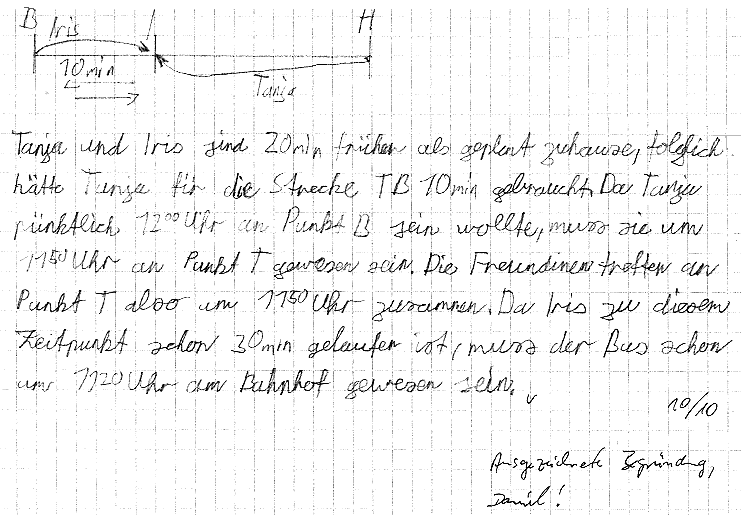 B Iris T H
10min
Tanja
Tanja und Iris sind 20min früher als geplant zuhause, folglich
hätte Tanja für die Strecke TB 10min gebraucht. Da Tanja
pünktlich 12⁰⁰ Uhr an Punkt B sein wollte, muss sie um
11⁵⁰ Uhr an Punkt T gewesen sein. Die Freundinen treffen an
Punkt T also um 11⁵⁰ Uhr zusammen. Da Iris zu diesem
Zeitpunkt schon 30min gelaufen ist, muss der Bus schon
um 11²⁰ Uhr am Bahnhof gewesen sein. ✓
10/10
Ausgezeichnete Begründung,
Daniel!